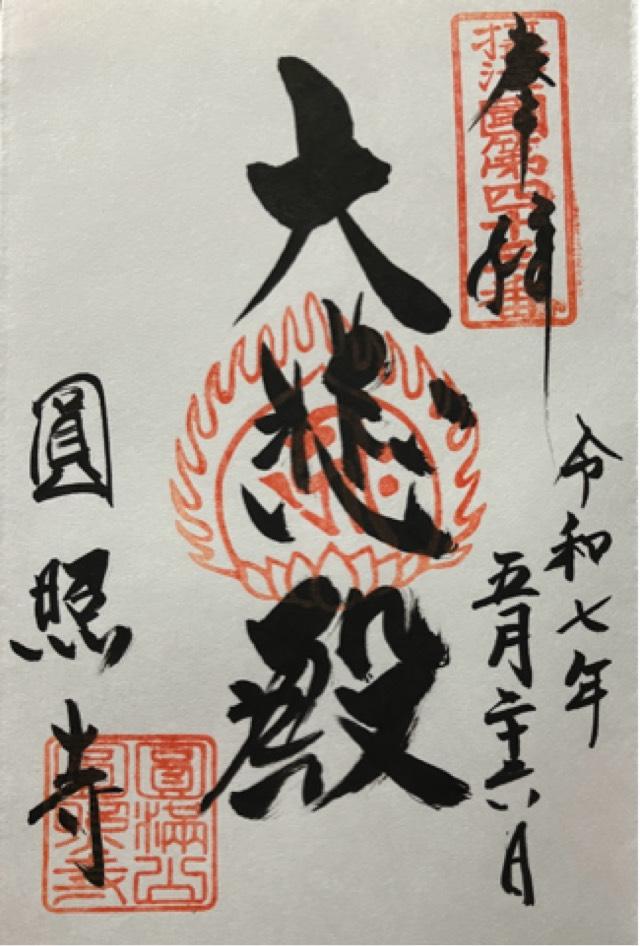 奉拝
攝津國第四十番
令和七年
五月二十六日
大悲殿
圓照寺
圓滿山
圓照寺